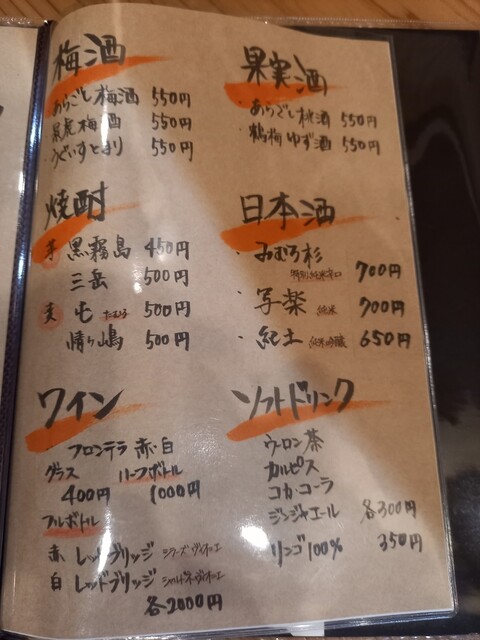 梅酒
あらごし梅酒 550円
黒虎梅酒 550円
うぐいすとまり 550円
焼酎
芋 黒霧島 450円
三岳 500円
麦 屯 たむろ 500円
情け嶋 500円
ワイン
フロンテラ 赤・白
グラス ハーフボトル
400円 1000円
フルボトル
赤 レッドブリッジ
白 レッドブリッジ
各2000円
果実酒
・あらごし桃酒 550円
・鶴梅ゆず酒 550円
日本酒
・みむろ杉
特別純米辛口 700円
・写楽 純米 700円
・紀土 純米吟醸 650円
ソフトドリンク
ウーロン茶
カルピス
コカ・コーラ
ジンジャエール 各300円
リンゴ100% 350円